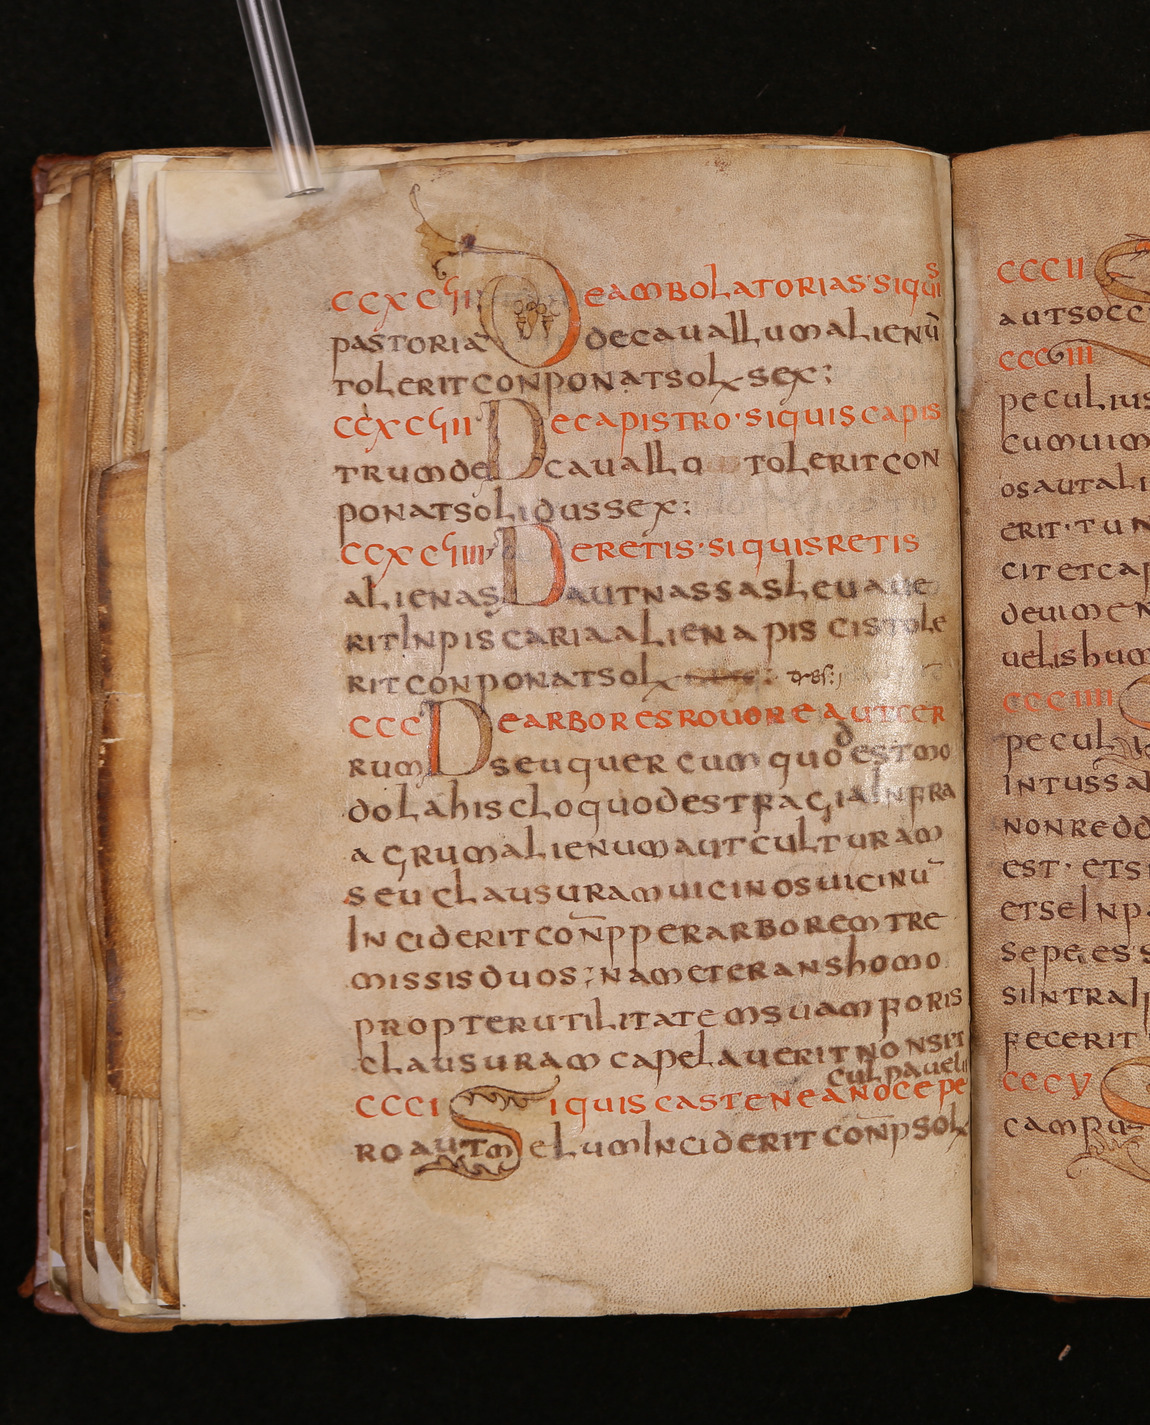 CCXCVII DEAMBOLATORIAS·SIQUIS
PASTORIA DECAUALLUM ALIENŪ
TOLERIT CONPONAT SOL SEX;
CCXCVIII DECAPISTRO·SIQUIS CAPIS
TRUM DE CAUALLO TOLERIT CON
PONAT SOLIDUS SEX;
CCXCVIIII DERETIS·SIQUIS RETIS
ALIENAS AUT NASSAS LEUAUE
RIT IN PISCARIA ALIENA PIS CIS TOLE
RIT CONPONAT SOL
CCC DE ARBORES ROUORE AUT CER
RUM SEU QUERCUM QUOD EST MO
DOLAHISCLO QUOD EST FRAGIA INFRA
AGRUM ALIENUM AUT CULTURAM
SEU CLAUSURAM UICINOS UICINŪ
INCIDERIT CON̄P PER ARBOREM TRE
MISSIS DUOS; NAM ETERANS HOMO
PROPTER UTILITATEM SUAM FORIS
CLAUSURAM CAPELAUERIT NON SIT
CULPAUELIS
CCCI SIQUIS CASTENEA NOCE PE
RO AUT MELUM INCIDERIT CON̄P SOL
CCCII
AUT SOCC
CCCUIII
PECULIUS
CUM UIM
OS AUT ALI
ERIT·TUN
CIT ET CAP
DEUIMEN
UELIS HUM
CCCIIII
PECUL
INTUS SA
NON REDD
EST· ETS
ET SE IN P
SEPE ES S
SI INTRA
FECERIT
CCCV
CAMPU